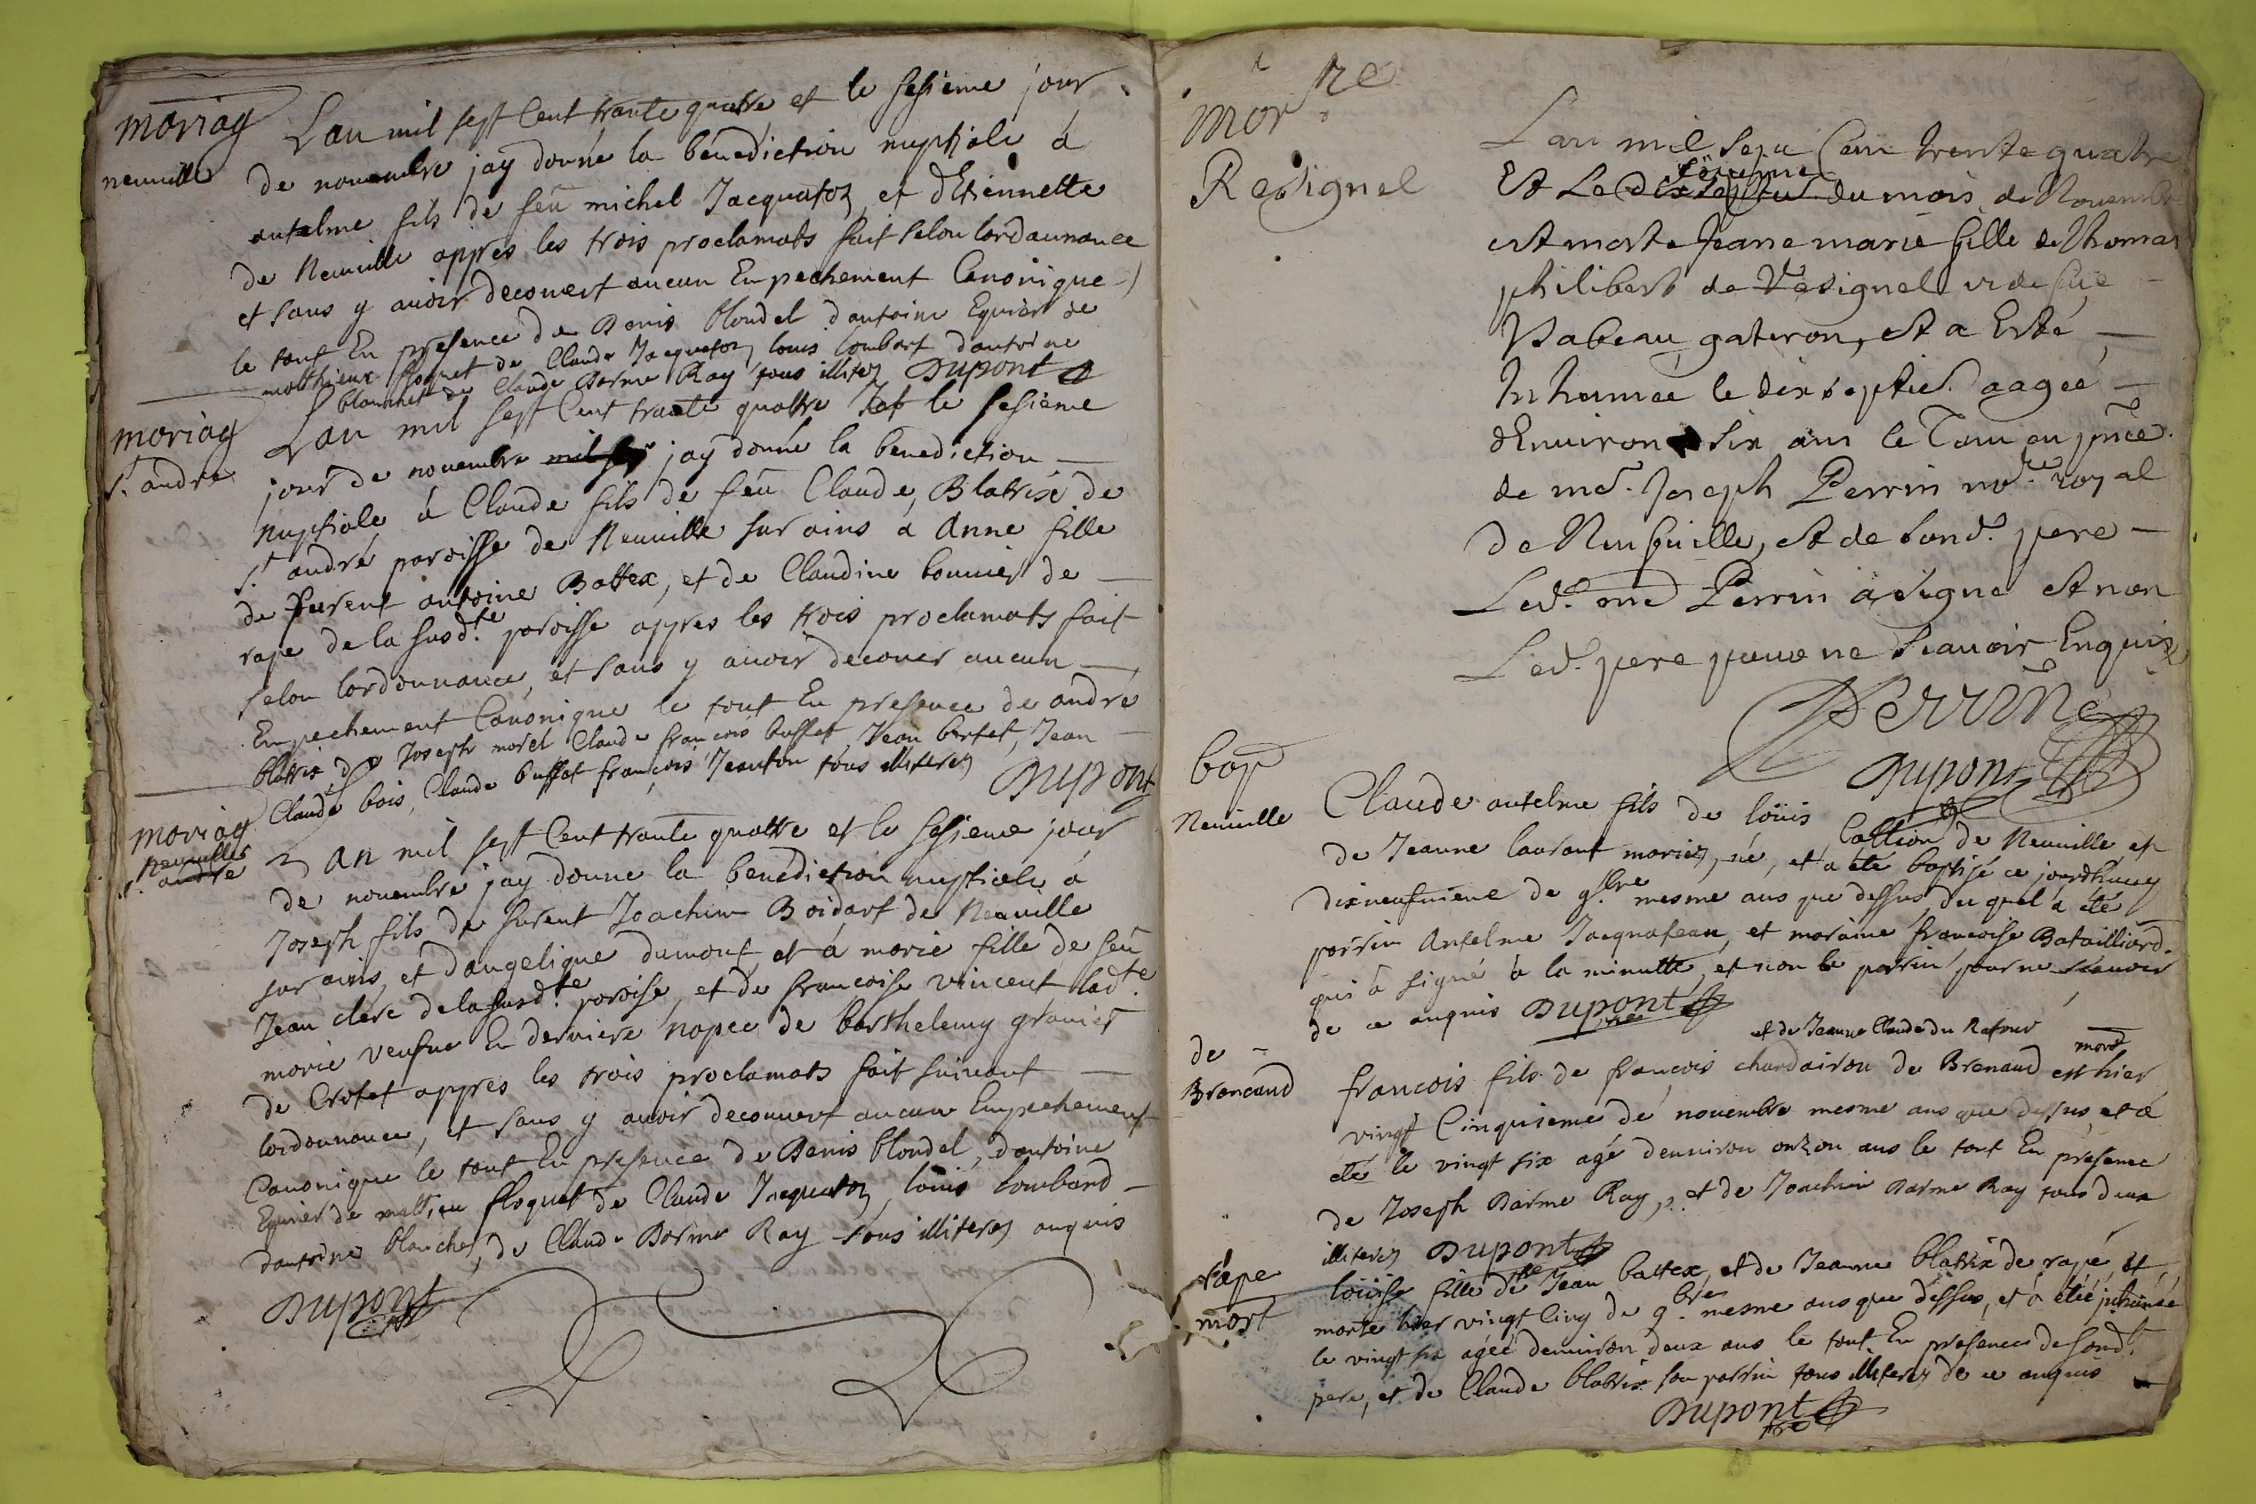 mariag
neuville
L'an mil sept Cent trante quatre, et le sesieme jour
de nouembre jay donné la bénédiction nuptiale à
antelme fils de feû michel Jacquatoz, et dEtiennette
de Neuuille appres les trois proclamats fait selon lordaunance
et sans y auoir decouvert aucun Enpechement Canonique
le tout En presence de Denis blondel d'antoine Equier de
matthieux floquet de Claude Jacquatoz, louis lombart d'antoine
blanchet de Claude Darme Ray tous illiterez Dupont
mariag
st. andré
Lan mil sept Cent trante quattre et le sesieme
jour de nouembre mil sep jay donné la benediction
nuptiale, à Claude fils de feû Claude, Blatrix de
st. andré paroisse de Neuuille sur ains à Anne fille
de furent antoine Battex, et de Claudine bouuier de
rape de la susd.te paroisse appres les trois proclamats fait
selon lordonnance, et sans y auoir decouuer aucun
Empechement Canonique le tout En presence de andré
blatrix de Joseph morel Claude francois buffet, Jean bertet, Jean
Claude bois, Claude buffet françois Jeanton tous illiterez Dupont
mariag
neuuille
st. andre
Lan mil sept Cent trante quattre et le sesieme jour
de nouembre jay donne la benédiction nuptiale à
Joseph fils de furent Joachim Boidart de Neuuille
sur ains, et d'angelique dumont, et à marie fille de feû
Jean clerc de la susd.te paroise, et de francoise vincent lad.te
marie veufue En derniere nopce de barthelemy granier
de Crotet appres les trois proclamats fait suiuant
lordonnance, et sans y auoir decouuert aucun Empechement
Canonique le tout En presence de Denis blondel, d'antoine
Equier de mattieu floquet de Claude Jacquatoz, louis lombard
dantoine blanchet, de Claude Darme Ray tous illiterez enquis
Dupont
Mor.re
Resignel
L'an mil Sept Cent trente quatre
Et Le dix septie du mois de Nouembre
est morte Jeane marie fille de Thomas
philibert de Résignel et de fûe
Ysabeau gateron, et a Esté
Inhumee le dix septie. aagée
d'Enuiron six ans le Tout en pnce.
de me. Joseph Perrin no.re royal
de Neufuille, et de sond. pere
Led. me Perrin a signé et non
Led. pere pour ne Scauoir Enquis
Perrin
Dupont
bap
Neuuille
Claude antelme fils de loüis Cattion de Neuuille, et
de Jeanne laurant mariez, né, et à été baptisé ce jourdhuy
dixneufuieme de 9.bre mesme ans que dessus du quel à été
parrin Antelme Jacquateau, et maraine francoise Batailliard.
qui à signé à la minutte, et non le parrin pour ne scauoir
de ce enquis Dupont
de
Brenaud
et de Jeanne Claude du Rafour
francois fils de françois chardairon de Brenaud est mort hier
vingt Cinquieme de nouembre mesme ans que dessus, et a
été le vingt six agé denuiron onzon ans le tout En présence
de Joseph Darme Ray, et de Joachin Darme Ray tous deux
illiterez Dupont
râpe
mort
loüise fille de Jean battex, et de Jeanne blatrix de rapé, et
morte hier vingt Cinq de 9.bre mesme ans que dessus, et à étée inhumée
le vingt six agée denuiron deux ans le tout En presence de sond.t
pere, et de Claude blatrix son parrin tous illiterez de ce enquis
Dupont